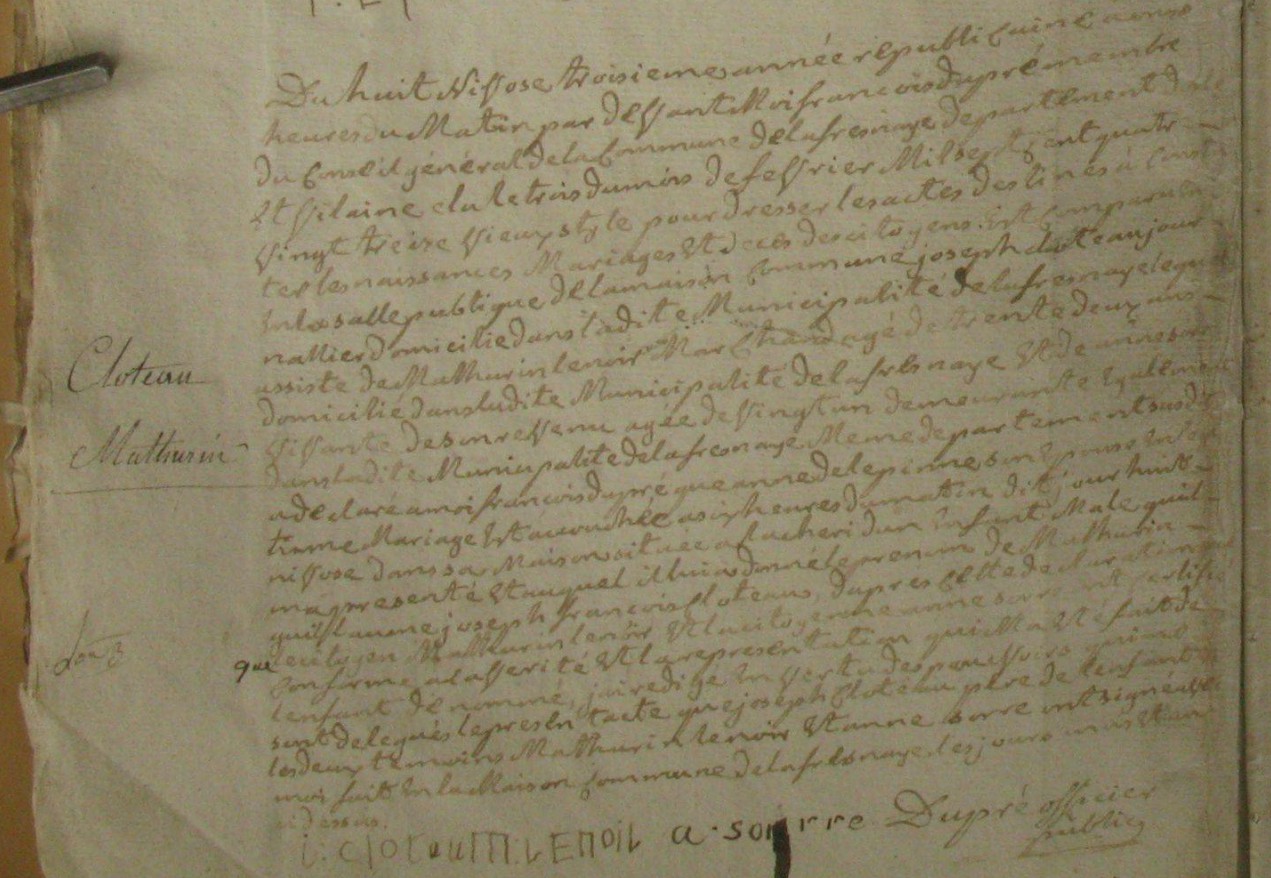 Du huit Nivose troisieme année républicaine a onze
heures du Matin par devant Moi françois dupré membre
du Conseil général de la Commune de la fresnaye département de
Et Vilaine elu le trois du mois de fevrier Mil sept cent quatre
vingt treize vieux style pour dresser les actes destinés à const
ter les naissances Mariages Et decès des citoyens. Est Comparu
En la salle publique de la maison Commune joseph cloteau jour
nallier domicilié dans ladite Municipalité de la fresnaye lequel
assisté de Mathurin lenoir Marchand agé de trente deux ans
domicilié dans ladite Municipalité de la fresnaye Et de anne sorre
vivante de son revenu agée de vingt un demeurante Egalement
dans ladite Municipalité de la fresnaye Meme departement susdit
a declaré a moi françois dupré que anne delepinne son Epouse En
time Mariage Est accouchée a six heures du matin dit jour huit
nivose dans sa Maison située a la cheri d'un Enfant Male quil
ma presenté Et auquel il lui a donné le prenom de Mathurin
guillaume joseph françois Cloteau, dapres Cette declaration que
le citoyen Mathurin lenoir Et la citoyenne anne sorre ont Certifié
Conforme a la verité Et la representation qui M'a Eté fait de
lenfant dénommé, jai redigé En vertu des pouvoirs qui me
sont delegués le present acte que joseph Cloteau pere de lenfant
les deux temoins Mathurin lenoir Et anne sorre ont signé avec
moi fait En la Maison Commune de la fresnaye les jours mois Et an
ci dessus.
Cloteau
Mathurin
que
i. clotau M. LENOIR a. sorre Dupré officier
public